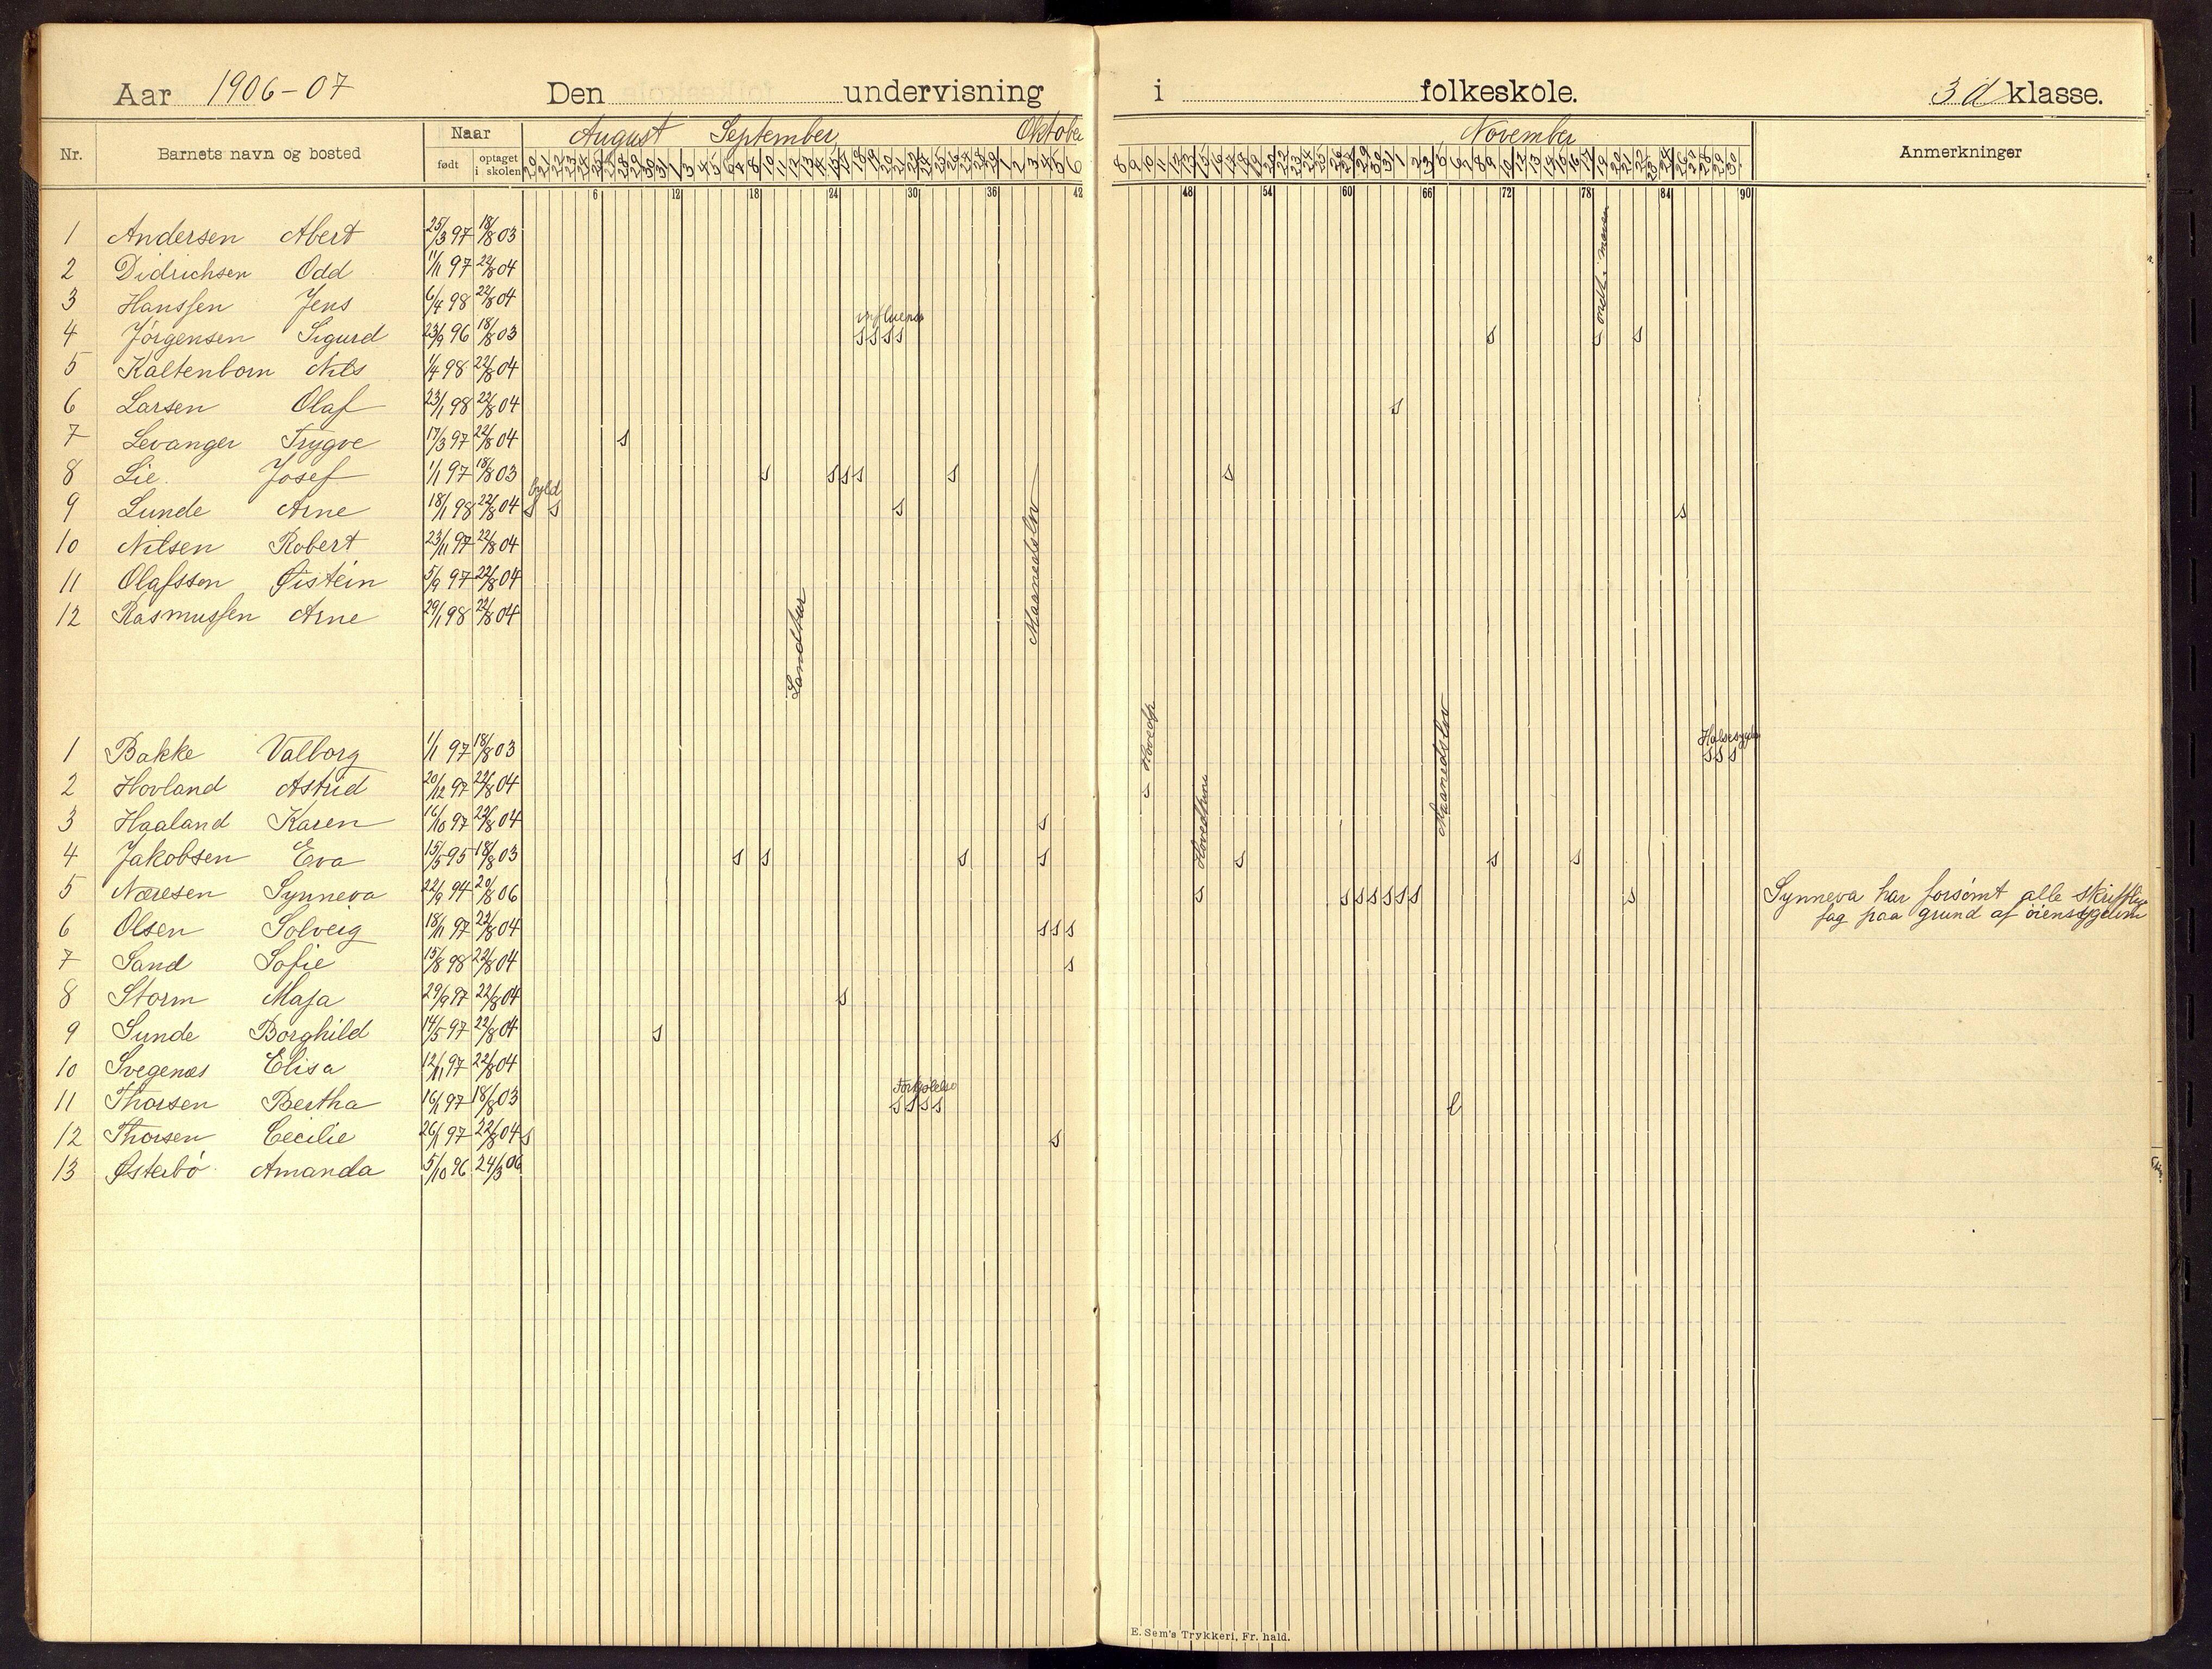 Aar 1906-07 Den undervisning i folkeskole. 3 d klasse.
Nr. Barnets navn og bosted Naar August September Oktober November Anmerkninger
født optaget i skolen
6 12 18 24 30 36 42 48 54 60 66 72 78 84 90
1 Andersen Abert 25/3 97 18/8 03
2 Didrichsen Odd 11/1 97 22/8 04
3 Hanssen Jens 6/4 98 22/8 04
influensa
4 Jörgensen Sigurd 23/9 96 18/8 03 s s s s s s s ondt i maven
5 Kaltenborn Nils 1/4 98 22/8 04
6 Larsen Olaf 23/1 98 22/8 04 s
7 Levanger Trygve 17/3 97 22/8 04 s
8 Lie Josef 1/1 97 18/8 03 s s s s s s
byld
9 Lunde Arne 18/1 98 22/8 04 s s s s
10 Nilsen Robert 23/11 97 22/8 04
11 Olafssen Øistein 5/9 97 22/8 04
12 Rasmussen Arne 29/1 98 22/8 04
Landtur
Maanedslov
Maanedslov
Halsesyge
1 Bakke Valborg 1/1 97 18/8 03 s s s
2 Hovland Astrid 20/12 97 22/8 04
3 Haaland Karen 16/10 97 22/8 04 s
4 Jakobsen Eva 15/5 95 18/8 03 s s s s s s s
5 Næresen Synneva 22/9 94 20/8 06 s s s s s s s s Synneva har forsömt alle skriftlige
fag paa grund af öiensygdum
6 Olsen Solveig 18/11 97 22/8 04 s s s
7 Sand Sofie 15/8 98 22/8 04 s
8 Storm Maja 29/9 97 22/8 04 s
9 Sunde Borghild 14/5 97 22/8 04 s
10 Svegenæs Elisa 12/11 97 22/8 04
Forkjölelse
11 Thorsen Bertha 16/1 97 18/8 03 s s s s l
12 Thorsen Cecilie 26/1 97 22/8 04 s s
13 Østebö Amanda 5/10 96 24/3 06
E. Sem's Trykkeri, Fr. hald.